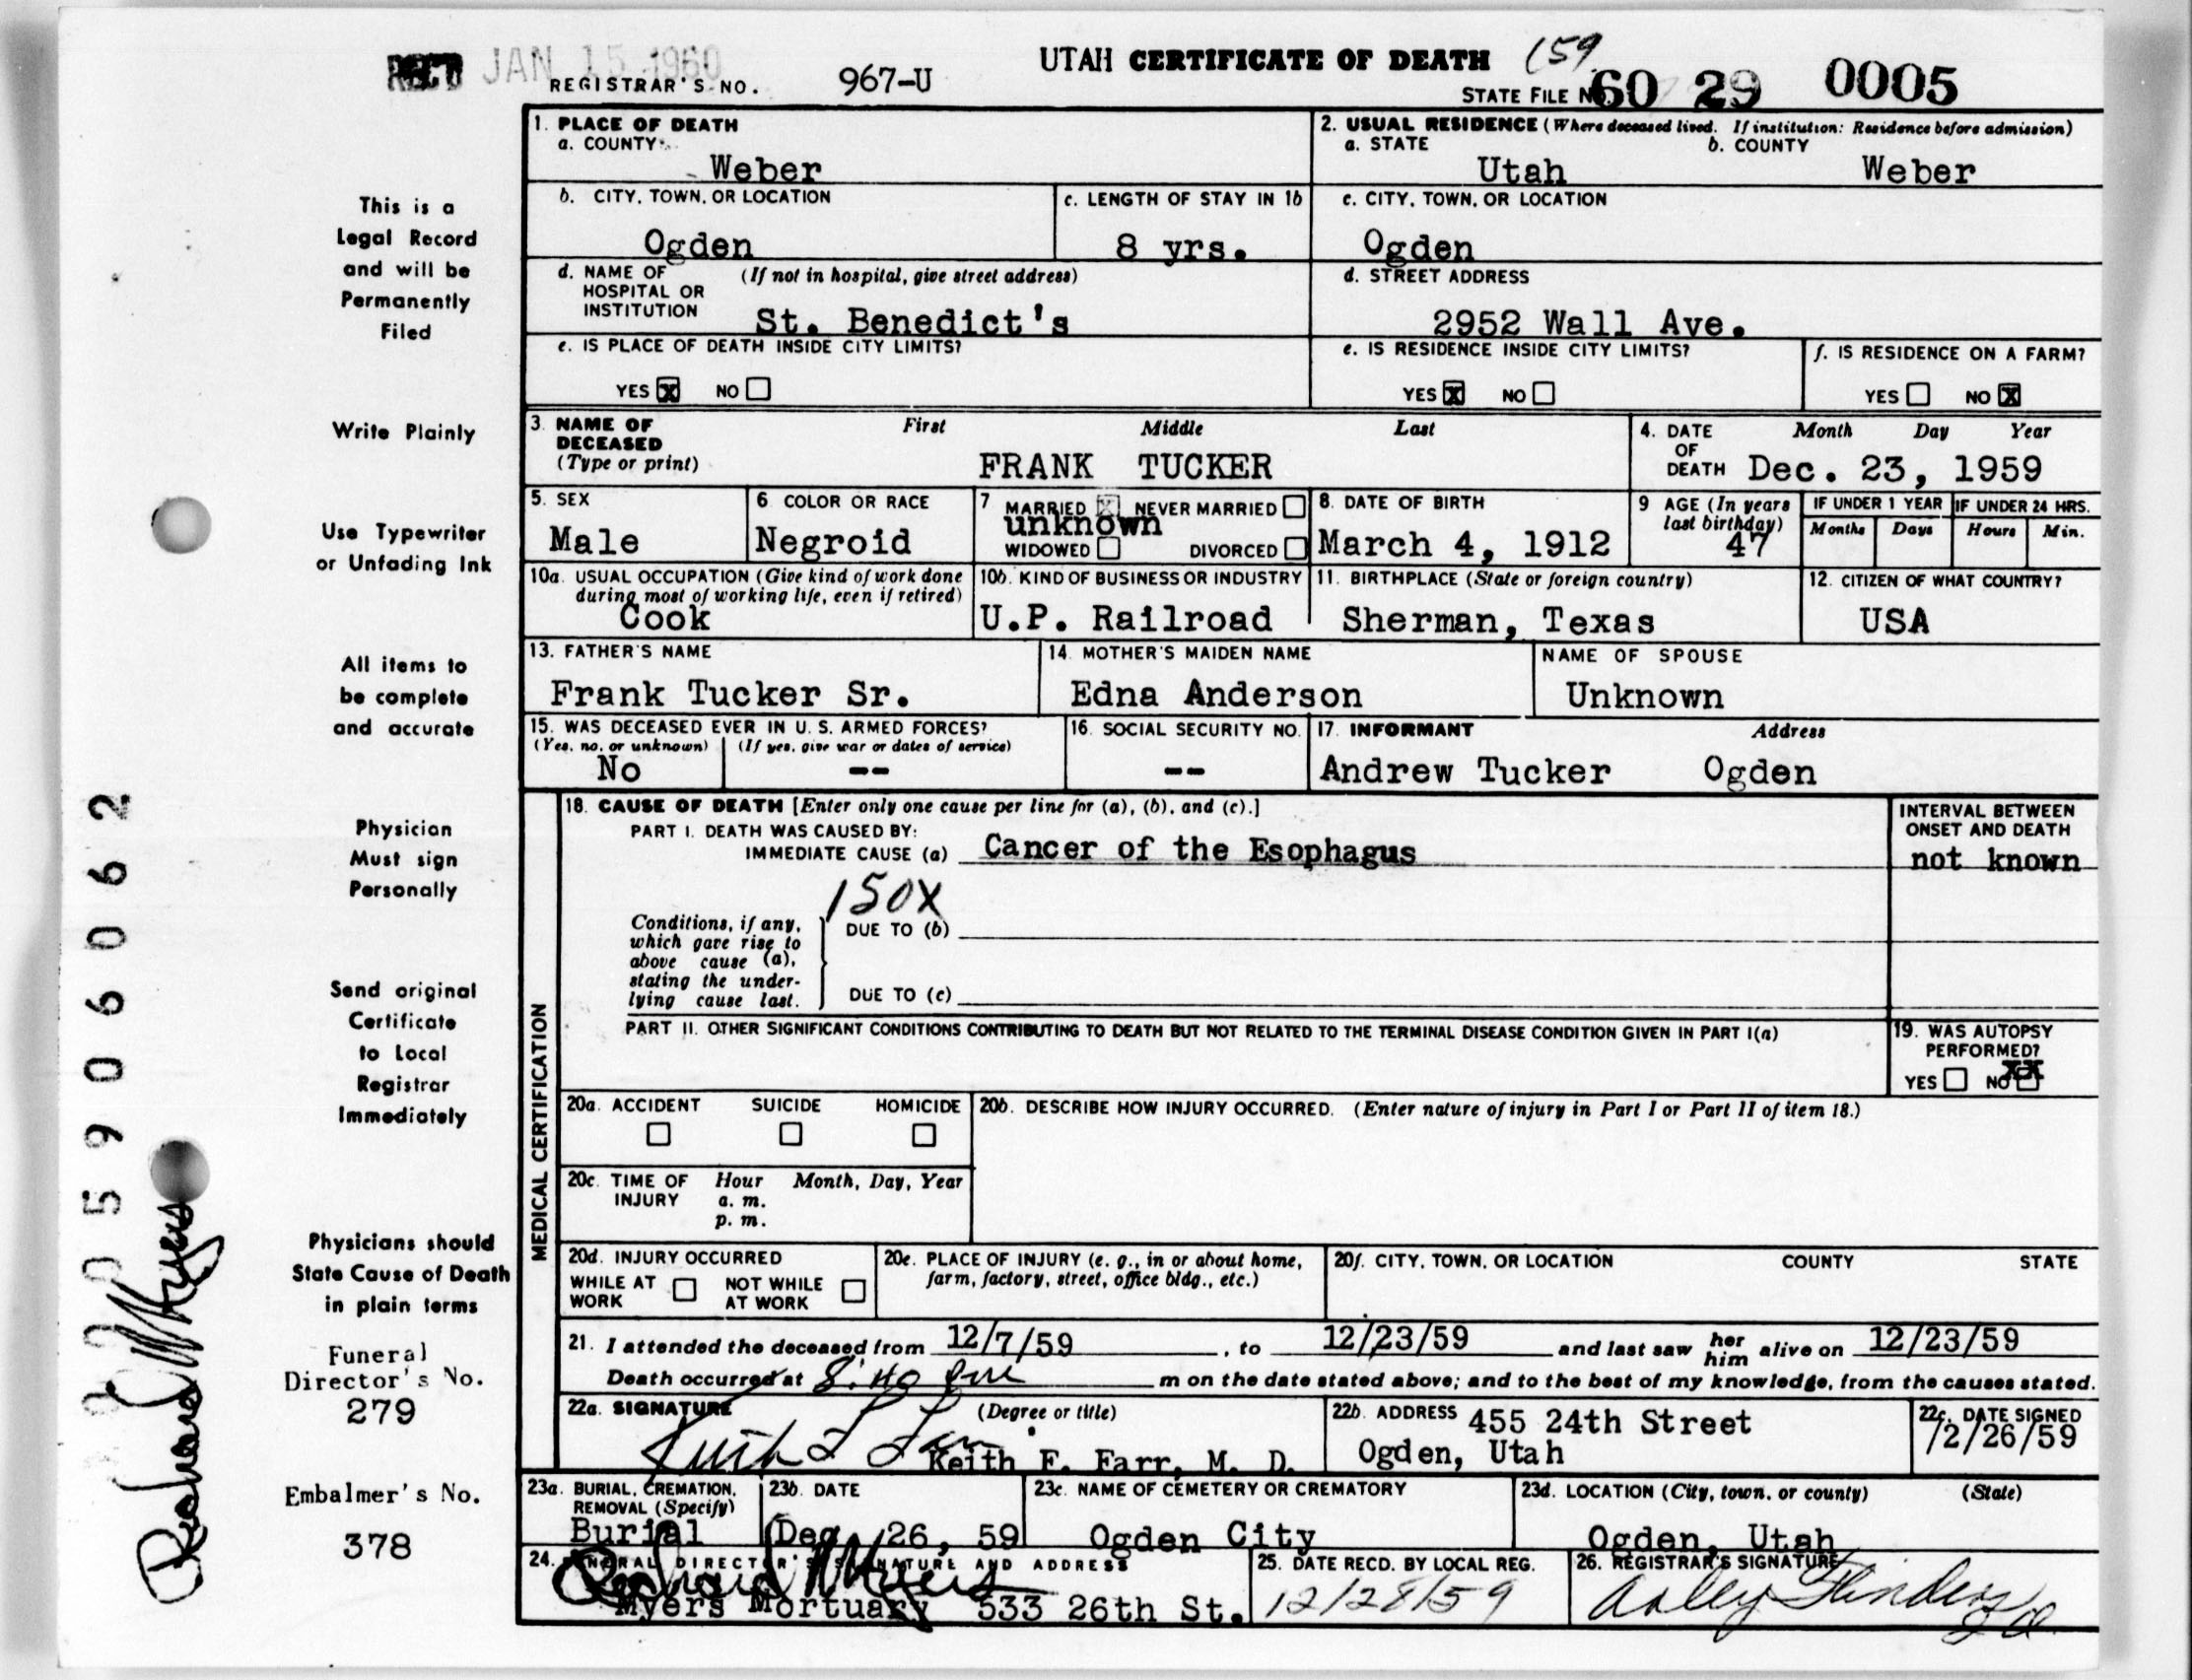 REC'D JAN 15 1960
UTAH CERTIFICATE OF DEATH 159
REGISTRAR'S NO. 967-U
STATE FILE NO. 60 29 0005
1. PLACE OF DEATH
a. COUNTY
Weber
2. USUAL RESIDENCE (Where deceased lived. If institution: Residence before admission)
a. STATE b. COUNTY
Utah Weber
b. CITY, TOWN, OR LOCATION
Ogden
c. LENGTH OF STAY IN 1b
8 yrs.
c. CITY, TOWN, OR LOCATION
Ogden
d. NAME OF (If not in hospital, give street address)
HOSPITAL OR
INSTITUTION
St. Benedict's
d. STREET ADDRESS
2952 Wall Ave.
e. IS PLACE OF DEATH INSIDE CITY LIMITS?
YES X NO
e. IS RESIDENCE INSIDE CITY LIMITS?
YES X NO
f. IS RESIDENCE ON A FARM?
YES NO X
3. NAME OF DECEASED
(Type or print)
First Middle Last
FRANK TUCKER
4. DATE OF DEATH
Month Day Year
Dec. 23, 1959
5. SEX
Male
6. COLOR OR RACE
Negroid
7 MARRIED X NEVER MARRIED
unknown
WIDOWED DIVORCED
8. DATE OF BIRTH
March 4, 1912
9 AGE (In years
last birthday)
47
IF UNDER 1 YEAR IF UNDER 24 HRS.
Months Days Hours Min.
10a. USUAL OCCUPATION (Give kind of work done
during most of working life, even if retired)
Cook
10b. KIND OF BUSINESS OR INDUSTRY
U.P. Railroad
11. BIRTHPLACE (State or foreign country)
Sherman, Texas
12. CITIZEN OF WHAT COUNTRY?
USA
13. FATHER'S NAME
Frank Tucker Sr.
14. MOTHER'S MAIDEN NAME
Edna Anderson
NAME OF SPOUSE
Unknown
15. WAS DECEASED EVER IN U. S. ARMED FORCES?
(Yes, no, or unknown) (If yes, give war or dates of service)
No --
16. SOCIAL SECURITY NO.
--
17. INFORMANT Address
Andrew Tucker Ogden
MEDICAL CERTIFICATION
18. CAUSE OF DEATH [Enter only one cause per line for (a), (b), and (c).]
PART I. DEATH WAS CAUSED BY:
IMMEDIATE CAUSE (a) Cancer of the Esophagus
INTERVAL BETWEEN
ONSET AND DEATH
not known
150X
Conditions, if any,
which gave rise to
above cause (a),
stating the under-
lying cause last.
DUE TO (b)
DUE TO (c)
PART II. OTHER SIGNIFICANT CONDITIONS CONTRIBUTING TO DEATH BUT NOT RELATED TO THE TERMINAL DISEASE CONDITION GIVEN IN PART I(a)
19. WAS AUTOPSY
PERFORMED?
YES NO XX
20a. ACCIDENT SUICIDE HOMICIDE
20b. DESCRIBE HOW INJURY OCCURRED. (Enter nature of injury in Part I or Part II of item 18.)
20c. TIME OF INJURY
Hour Month, Day, Year
a. m.
p. m.
20d. INJURY OCCURRED
WHILE AT WORK NOT WHILE AT WORK
20e. PLACE OF INJURY (e. g., in or about home,
farm, factory, street, office bldg., etc.)
20f. CITY, TOWN, OR LOCATION COUNTY STATE
21. I attended the deceased from 12/7/59, to 12/23/59 and last saw her him alive on 12/23/59
Death occurred at 8:40 pm m on the date stated above; and to the best of my knowledge, from the causes stated.
22a. SIGNATURE (Degree or title)
Keith F. Farr, M. D.
22b. ADDRESS 455 24th Street
Ogden, Utah
22c. DATE SIGNED
12/26/59
23a. BURIAL, CREMATION,
REMOVAL (Specify)
Burial
23b. DATE
Dec 26, 59
23c. NAME OF CEMETERY OR CREMATORY
Ogden City
23d. LOCATION (City, town, or county) (State)
Ogden, Utah
24. FUNERAL DIRECTOR'S SIGNATURE AND ADDRESS
Richard Myers
Myers Mortuary 533 26th St.
25. DATE RECD. BY LOCAL REG.
12/28/59
26. REGISTRAR'S SIGNATURE
This is a
Legal Record
and will be
Permanently
Filed
Write Plainly
Use Typewriter
or Unfading Ink
All items to
be complete
and accurate
Physician
Must sign
Personally
Send original
Certificate
to Local
Registrar
Immediately
Physicians should
State Cause of Death
in plain terms
Funeral
Director's No.
279
Embalmer's No.
378
Richard Myers